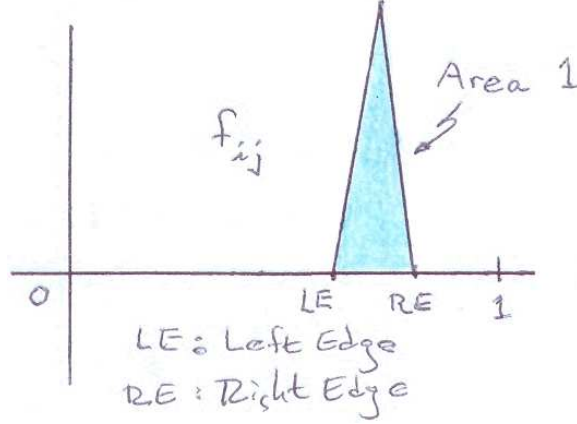 Area 1
f_ij
0
LE RE 1
LE: Left Edge
RE: Right Edge